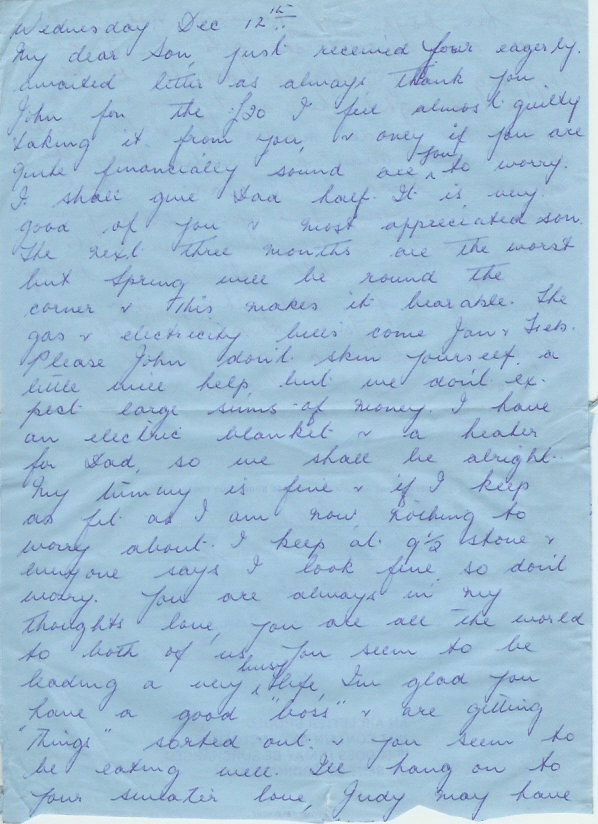 Wednesday Dec 12th
My dear Son, just received your eagerly.
awaited letter as always thank you
John for the £20 I feel almost guilty
taking it from you, & oney if you are
quite financially sound are you to worry.
I shall give Dad half. It is very
good of you & most appreciated son.
The next three months are the worst
but Spring will be round the
corner & this makes it bearable. The
gas & electricity bills come Jan & Feb.
Please John don't skin yourself. a
little will help but we don't ex-
pect large sums of money. I have
an electric blanket & a heater
for Dad, so we shall be alright.
My tummy is fine & if I keep
as fit as I am now nothing to
worry about. I keep at 9½ stone &
everyone says I look fine, so don't
worry. You are always in my
thoughts love, you are all the world
to both of us, You seem to be
leading a very busy life, I'm glad you
have a good "boss" & are getting
"things" sorted out. & you seem to
be eating well. I'll hang on to
your sweater love, Judy may have